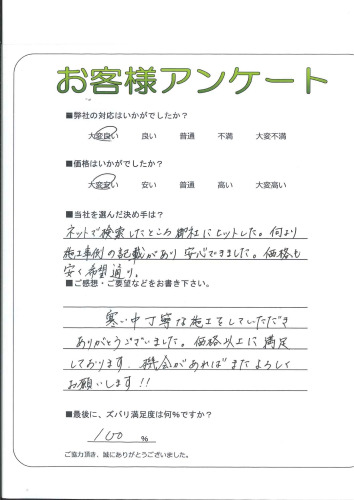 お客様アンケート
■弊社の対応はいかがでしたか?
大変良い 良い 普通 不満 大変不満
■価格はいかがでしたか?
大変安い 安い 普通 高い 大変高い
■当社を選んだ決め手は?
ネットで検索したところ御社にヒットした。何より
施工事例の記載があり安心できました。価格も
安く希望通り。
■ご感想・ご要望などをお書き下さい。
寒い中丁寧な施工をしていただき
ありがとうございました。価格以上に満足
しております。機会があればまたよろしく
お願いします!!
■最後に、ズバリ満足度は何%ですか?
100 %
ご協力頂き、誠にありがとうございました。